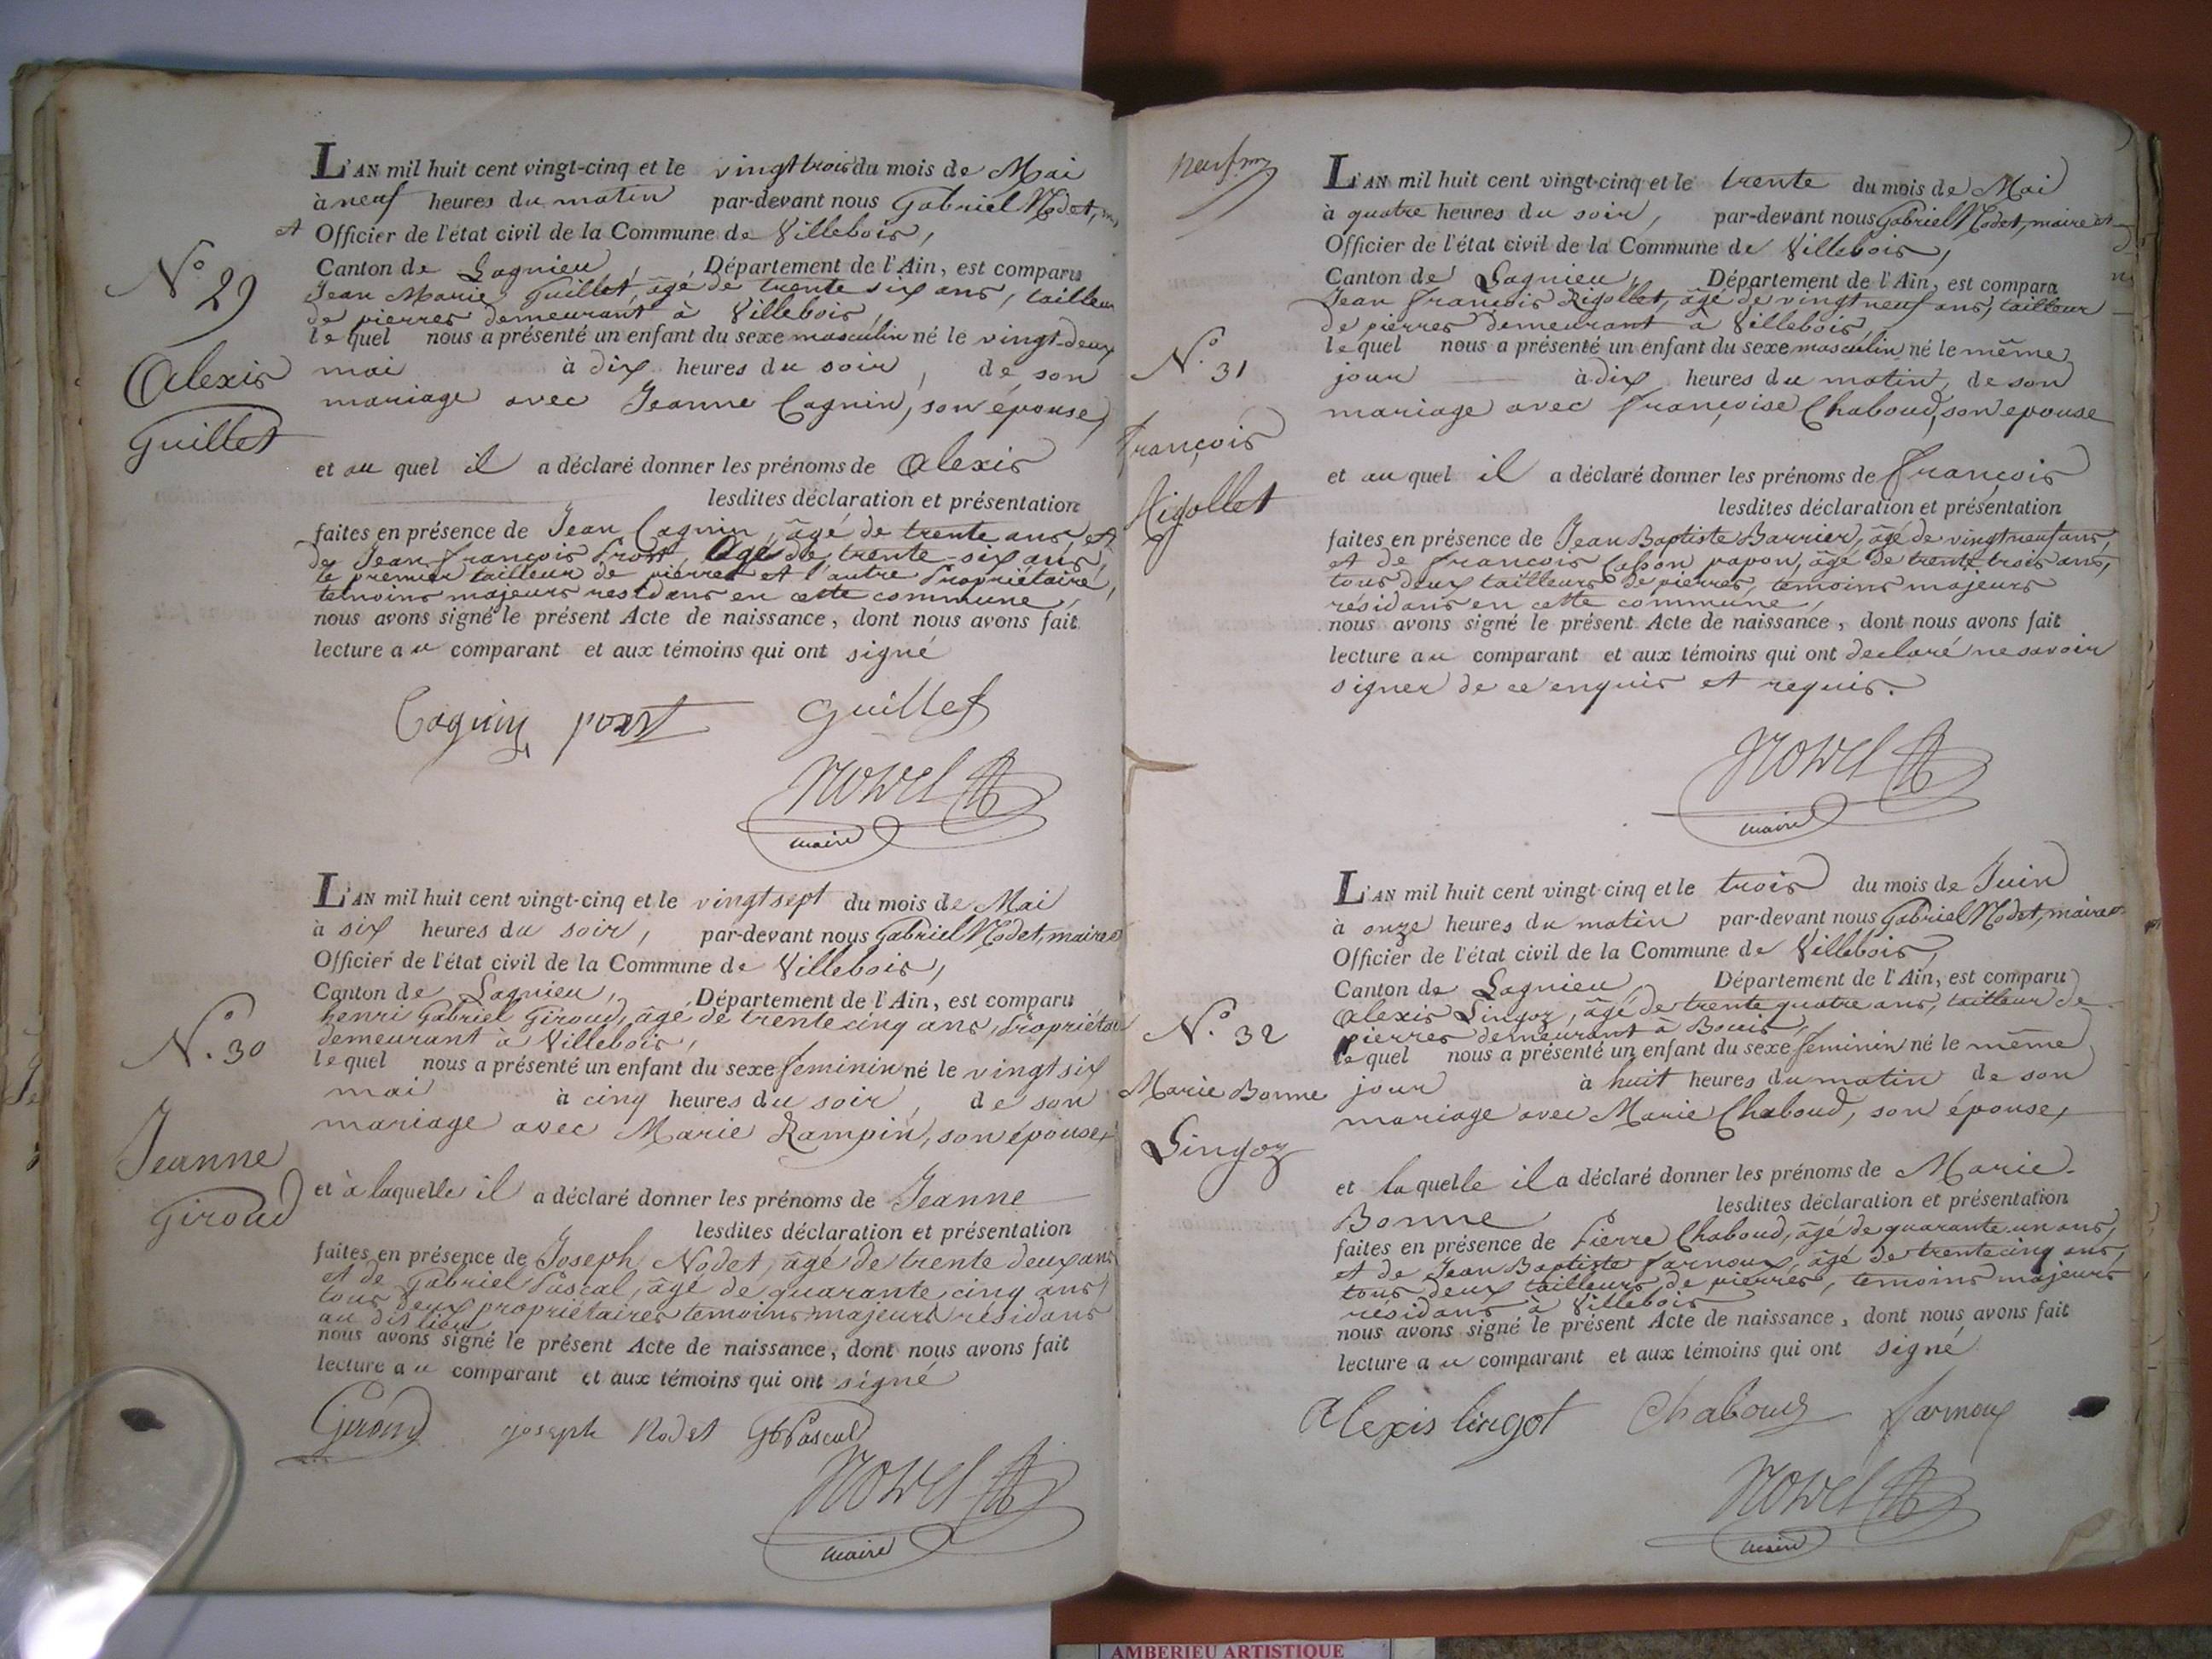 L'AN mil huit cent vingt-cinq et le vingt trois du mois de Mai
à neuf heures du matin par-devant nous Gabriel Nodet, m
et Officier de l'état civil de la Commune de Villebois,
Canton de Lagnieu, Département de l'Ain, est comparu
Jean Marie Guillet, âgé de trente six ans, tailleur
de pierres demeurant à Villebois,
lequel nous a présenté un enfant du sexe masculin né le vingt-deux
mai à dix heures du soir, de son
mariage avec Jeanne Cagnin, son épouse,
et au quel il a déclaré donner les prénoms de Alexis
lesdites déclaration et présentation
faites en présence de Jean Cagnin, âgé de trente ans, et
de Jean François Prost, Agé de trente-six ans,
le premier tailleur de pierres et l'autre Propriétaire,
témoins majeurs residans en cette commune,
nous avons signé le présent Acte de naissance, dont nous avons fait
lecture au comparant et aux témoins qui ont signé
Cagnin prost Guillet
Nodet
maire
N.° 29
Alexis
Guillet
L'AN mil huit cent vingt-cinq et le vingt sept du mois de Mai
à six heures du soir, par-devant nous Gabriel Nodet, maire et
Officier de l'état civil de la Commune de Villebois,
Canton de Lagnieu, Département de l'Ain, est comparu
henri Gabriel Giroud, âgé de trente cinq ans, Propriétai
demeurant à Villebois,
lequel nous a présenté un enfant du sexe feminin né le vingt six
mai à cinq heures du soir, de son
mariage avec Marie Rampin, son épouse,
et à laquelle il a déclaré donner les prénoms de Jeanne
lesdites déclaration et présentation
faites en présence de Joseph Nodet, âgé de trente deux ans
et de Gabriel Pascal, âgé de quarante cinq ans,
tous deux propriétaires temoins majeurs résidans
au dit lieu
nous avons signé le présent Acte de naissance, dont nous avons fait
lecture au comparant et aux témoins qui ont signé
Giroud joseph Nodet Gb Pascal
Nodet
maire
N.° 30
Jeanne
Giroud
L'AN mil huit cent vingt-cinq et le trente du mois de Mai
à quatre heures du soir, par-devant nous Gabriel Nodet, maire et
Officier de l'état civil de la Commune de Villebois,
Canton de Lagnieu, Département de l'Ain, est compara
Jean François Rigollet, âgé de vingt neuf ans, tailleur
de pierres demeurant à Villebois,
lequel nous a présenté un enfant du sexe masculin né le même
jour à dix heures du matin, de son
mariage avec Françoise Chaboud, son épouse
et au quel il a déclaré donner les prénoms de François
lesdites déclaration et présentation
faites en présence de Jean Baptiste Barrier, âgé de vingt neuf ans,
et de François Casson papon, âgé de trente trois ans,
tous deux tailleurs de pierres, témoins majeurs
résidans en cette commune,
nous avons signé le présent Acte de naissance, dont nous avons fait
lecture au comparant et aux témoins qui ont declaré ne savoir
signer de ce enquis et requis.
Nodet
maire
N.° 31
François
Rigollet
L'AN mil huit cent vingt-cinq et le trois du mois de Juin
à onze heures du matin par-devant nous Gabriel Nodet, maire et
Officier de l'état civil de la Commune de Villebois,
Canton de Lagnieu, Département de l'Ain, est comparu
Alexis Lingoz, âgé de trente quatre ans, tailleur de
pierres demeurant à Bouis,
lequel nous a présenté un enfant du sexe feminin né le même
jour à huit heures du matin de son
mariage avec Marie Chaboud, son épouse,
et laquelle il a déclaré donner les prénoms de Marie
Bonne lesdites déclaration et présentation
faites en présence de Pierre Chaboud, âgé de quarante un ans,
et de Jean Baptiste Jarnoux, âgé de trente cinq ans,
tous deux tailleurs de pierres, temoins majeurs
résidans à Villebois
nous avons signé le présent Acte de naissance, dont nous avons fait
lecture au comparant et aux témoins qui ont signé
Alexis lingot Chaboud Jarnoux
Nodet
maire
N.° 32
Marie Bonne
Lingoz
AMBERIEU ARTISTIQUE